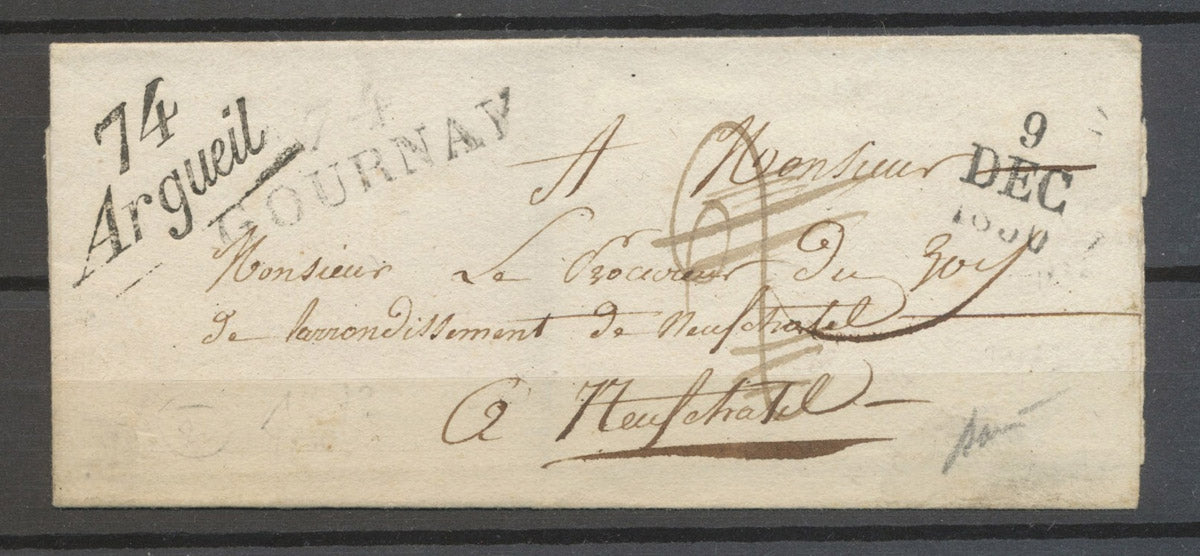 74
Argueil
74
GOURNAY
9
DEC
1830
A Monsieur
Monsieur Le Procureur Du Roy
de larrondissement de Neufchatel
A Neufchatel